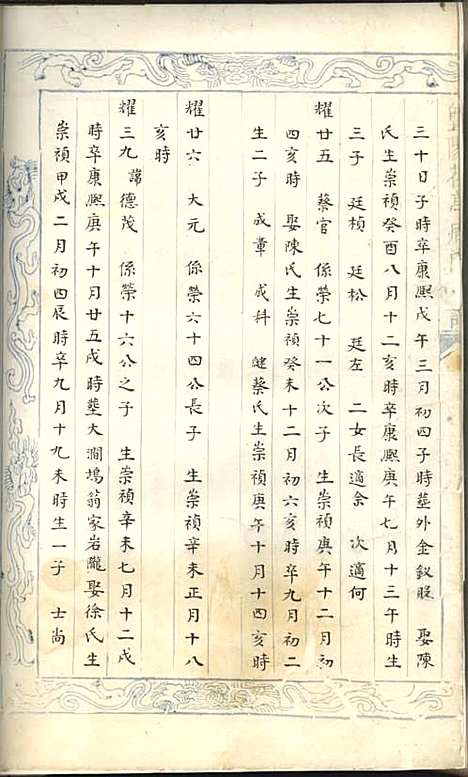 三十日子時卒康熙戊午三月初四子時塟外金釵股 娶陳
氏生崇禎癸酉八月十二亥時卒康熙庚午七月十三午時生
三子 廷楨 廷松 廷左 二女長適余 次適何
耀廿五 蔡官 係榮七十一公次子 生崇禎庚午十二月初
四亥時 娶陳氏生崇禎癸未十二月初六亥時卒九月初二
生二子 成章 成科 継蔡氏生崇禎庚午十月十四亥時
耀廿六 大元 係榮六十四公長子 生崇禎辛未正月十八
亥時
耀三九 諱德茂 係榮十六公之子 生崇禎辛未七月十二戌
時卒康熙庚午十月廿五戌時塟大澗塢翁家岩隴娶徐氏生
崇禎甲戌二月初四辰時卒九月十九未時生一子 士尚